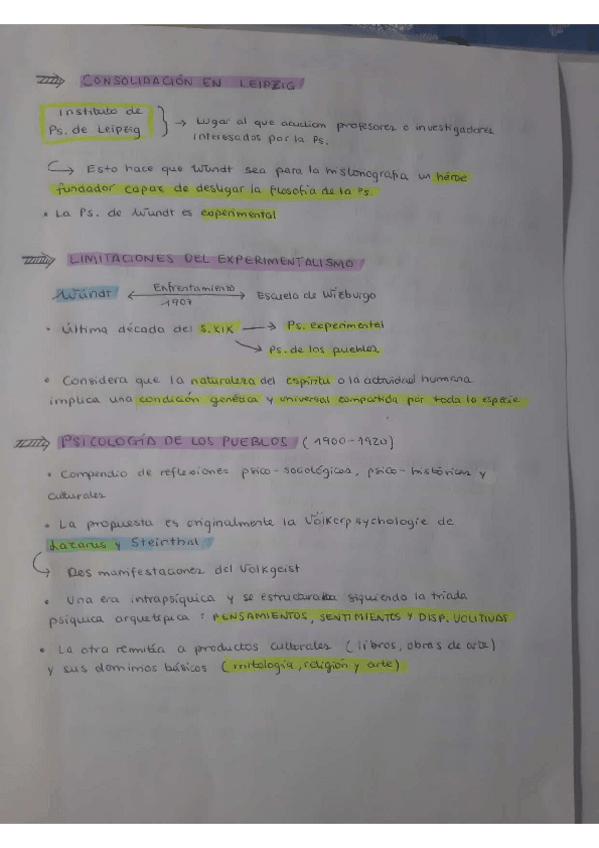 CONSOLIDACIÓN EN LEIPZIG
Instituto de
Ps. de Leipzig → Lugar al que acudían profesores e investigadores
interesados por la Ps.
Esto hace que Wündt sea para la historiografia un héroe
fundador capaz de desligar la filosofía de la Ps.
• La Ps. de Wündt es experimental
LIMITACIONES DEL EXPERIMENTALISMO
Wündt ← Enfrentamiento → Escuela de Wizburgo
1907
• Última década del S.XIX → Ps. experimental
→ Ps. de los pueblos
• Considera que la naturaleza del espíritu o la actividad humana
implica una condición genética y universal compartida por toda la especie.
PSICOLOGÍA DE LOS PUEBLOS (1900-1920)
• Compendio de reflexiones psico-sociológicas, psico-históricas y
culturales
• La propuesta es originalmente la Völkerpsychologie de
Lazarus y Steinthal
Dos manifestaciones del Volkgeist
• Una era intrapsíquica y se estructuraba siguiendo la triada
psíquica arquetípica: PENSAMIENTOS, SENTIMIENTOS Y DISP. VOLITIVAS
• La otra remitía a productos culturales (libros, obras de arte)
y sus dominios básicos (mitología, religión y arte)